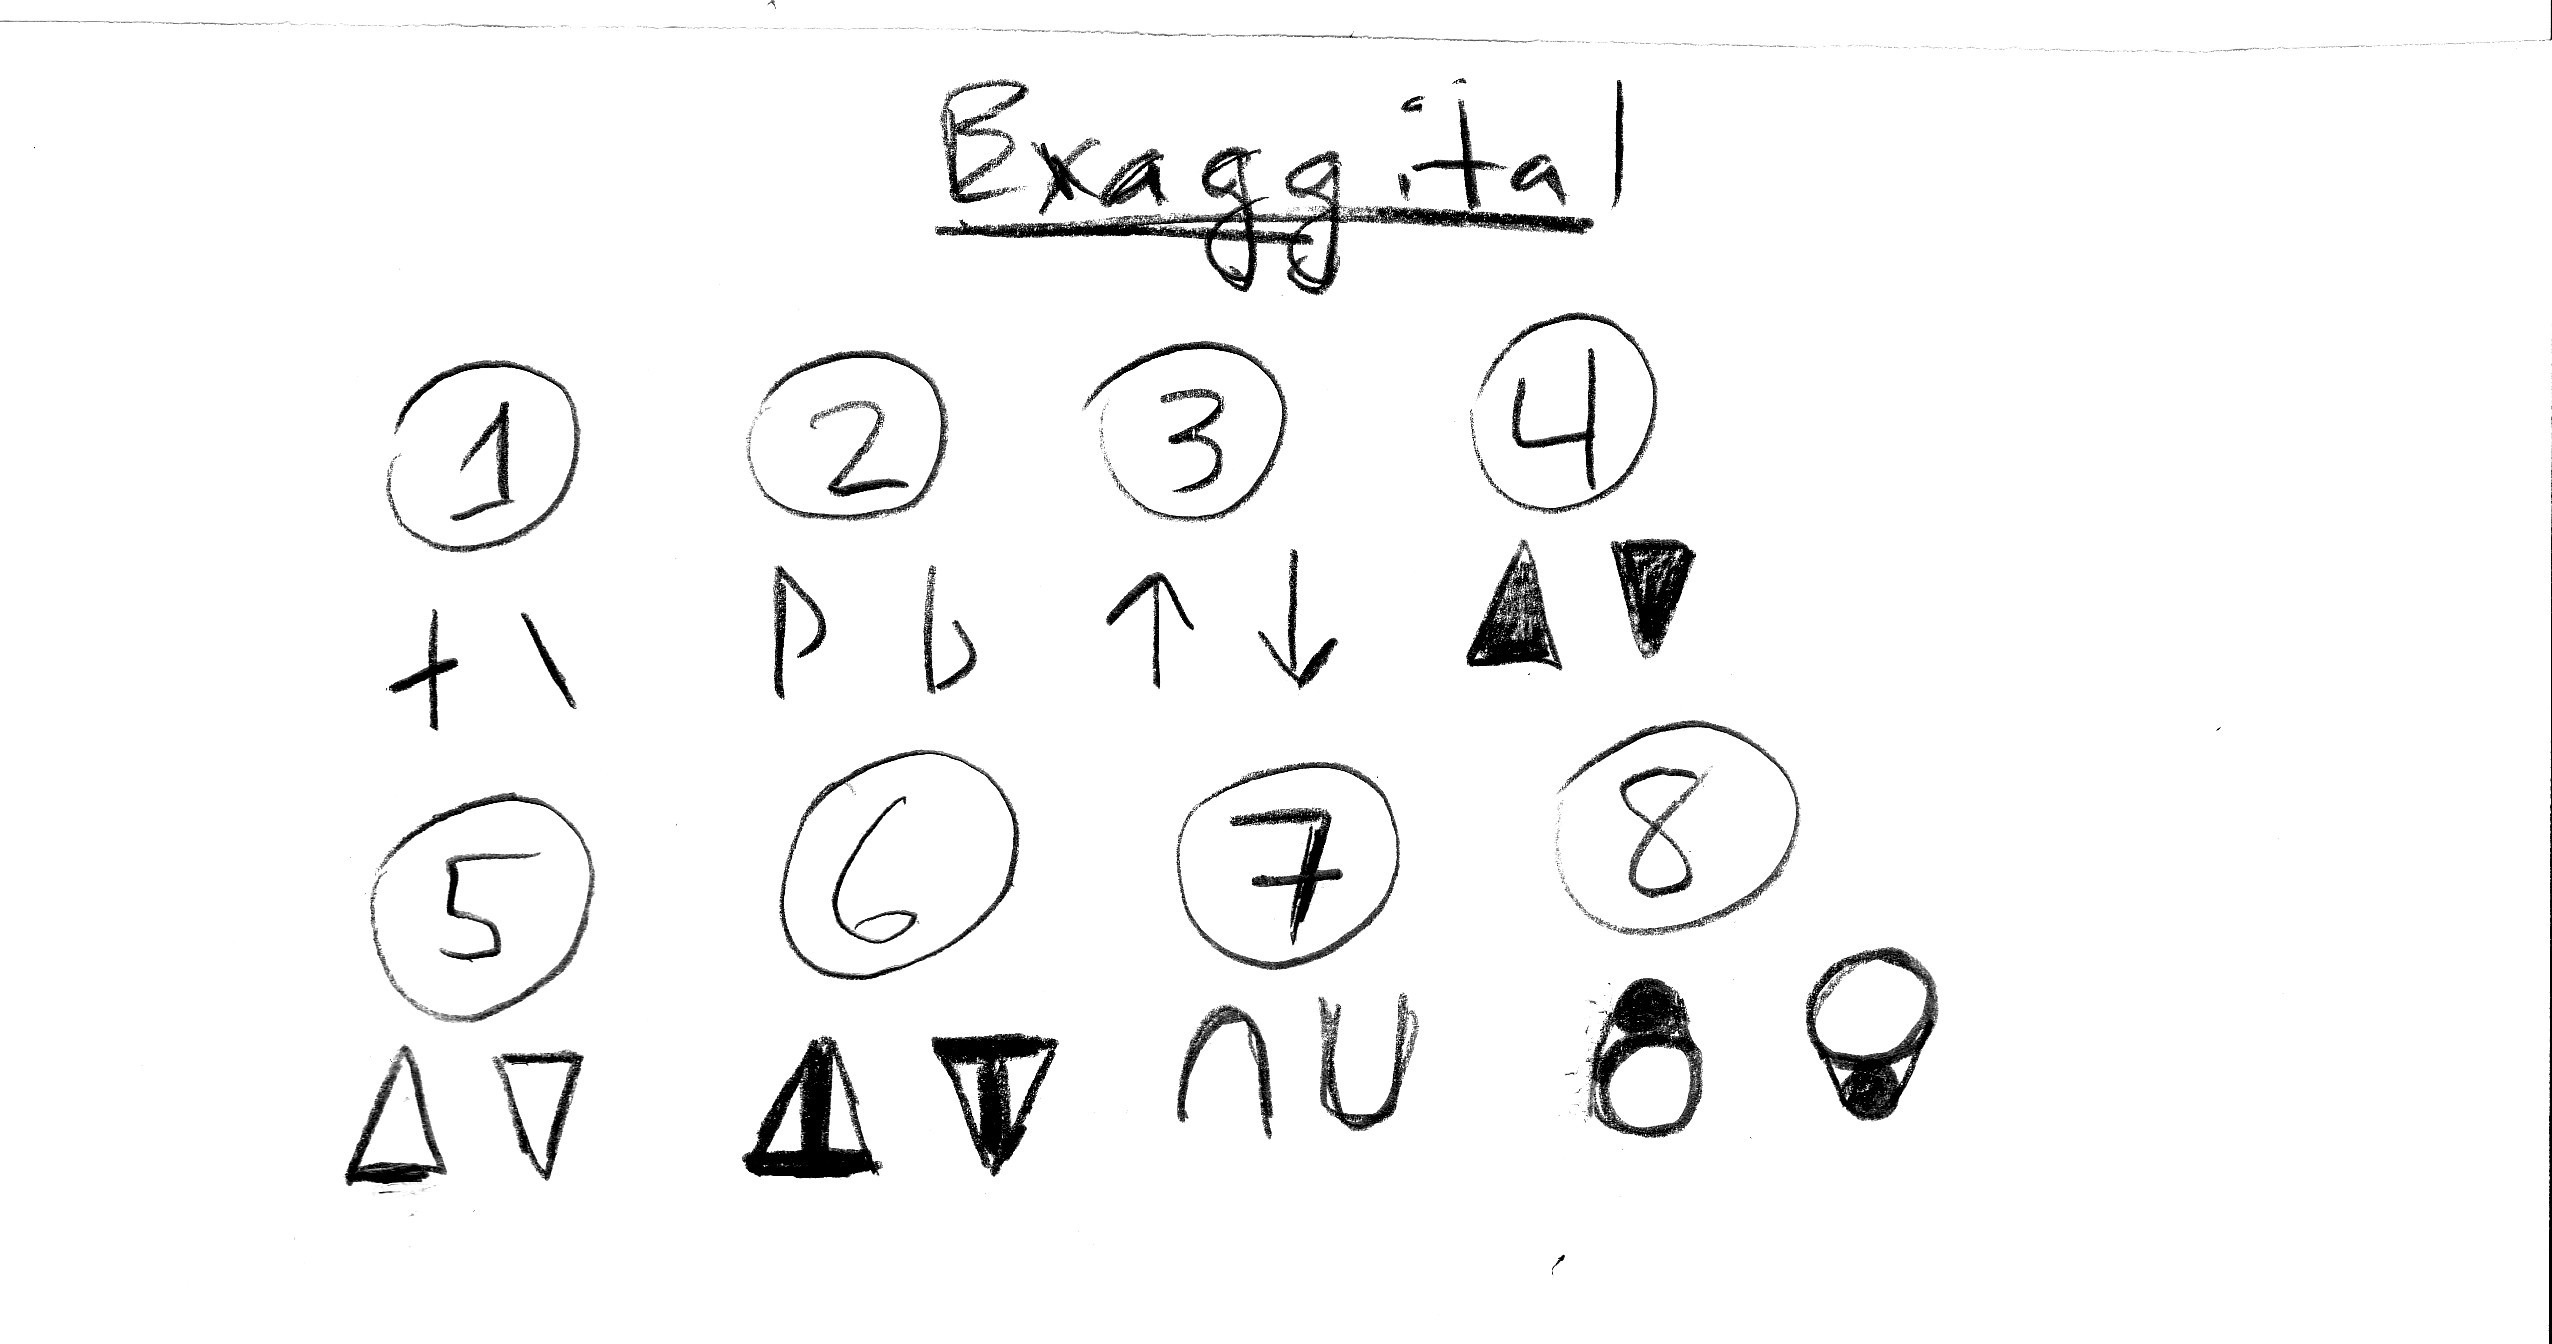 Exaggital
1 2 3 4
+ \ p b ↑ ↓ ▲ ▼
5 6 7 8
△ ▽ ∩ U